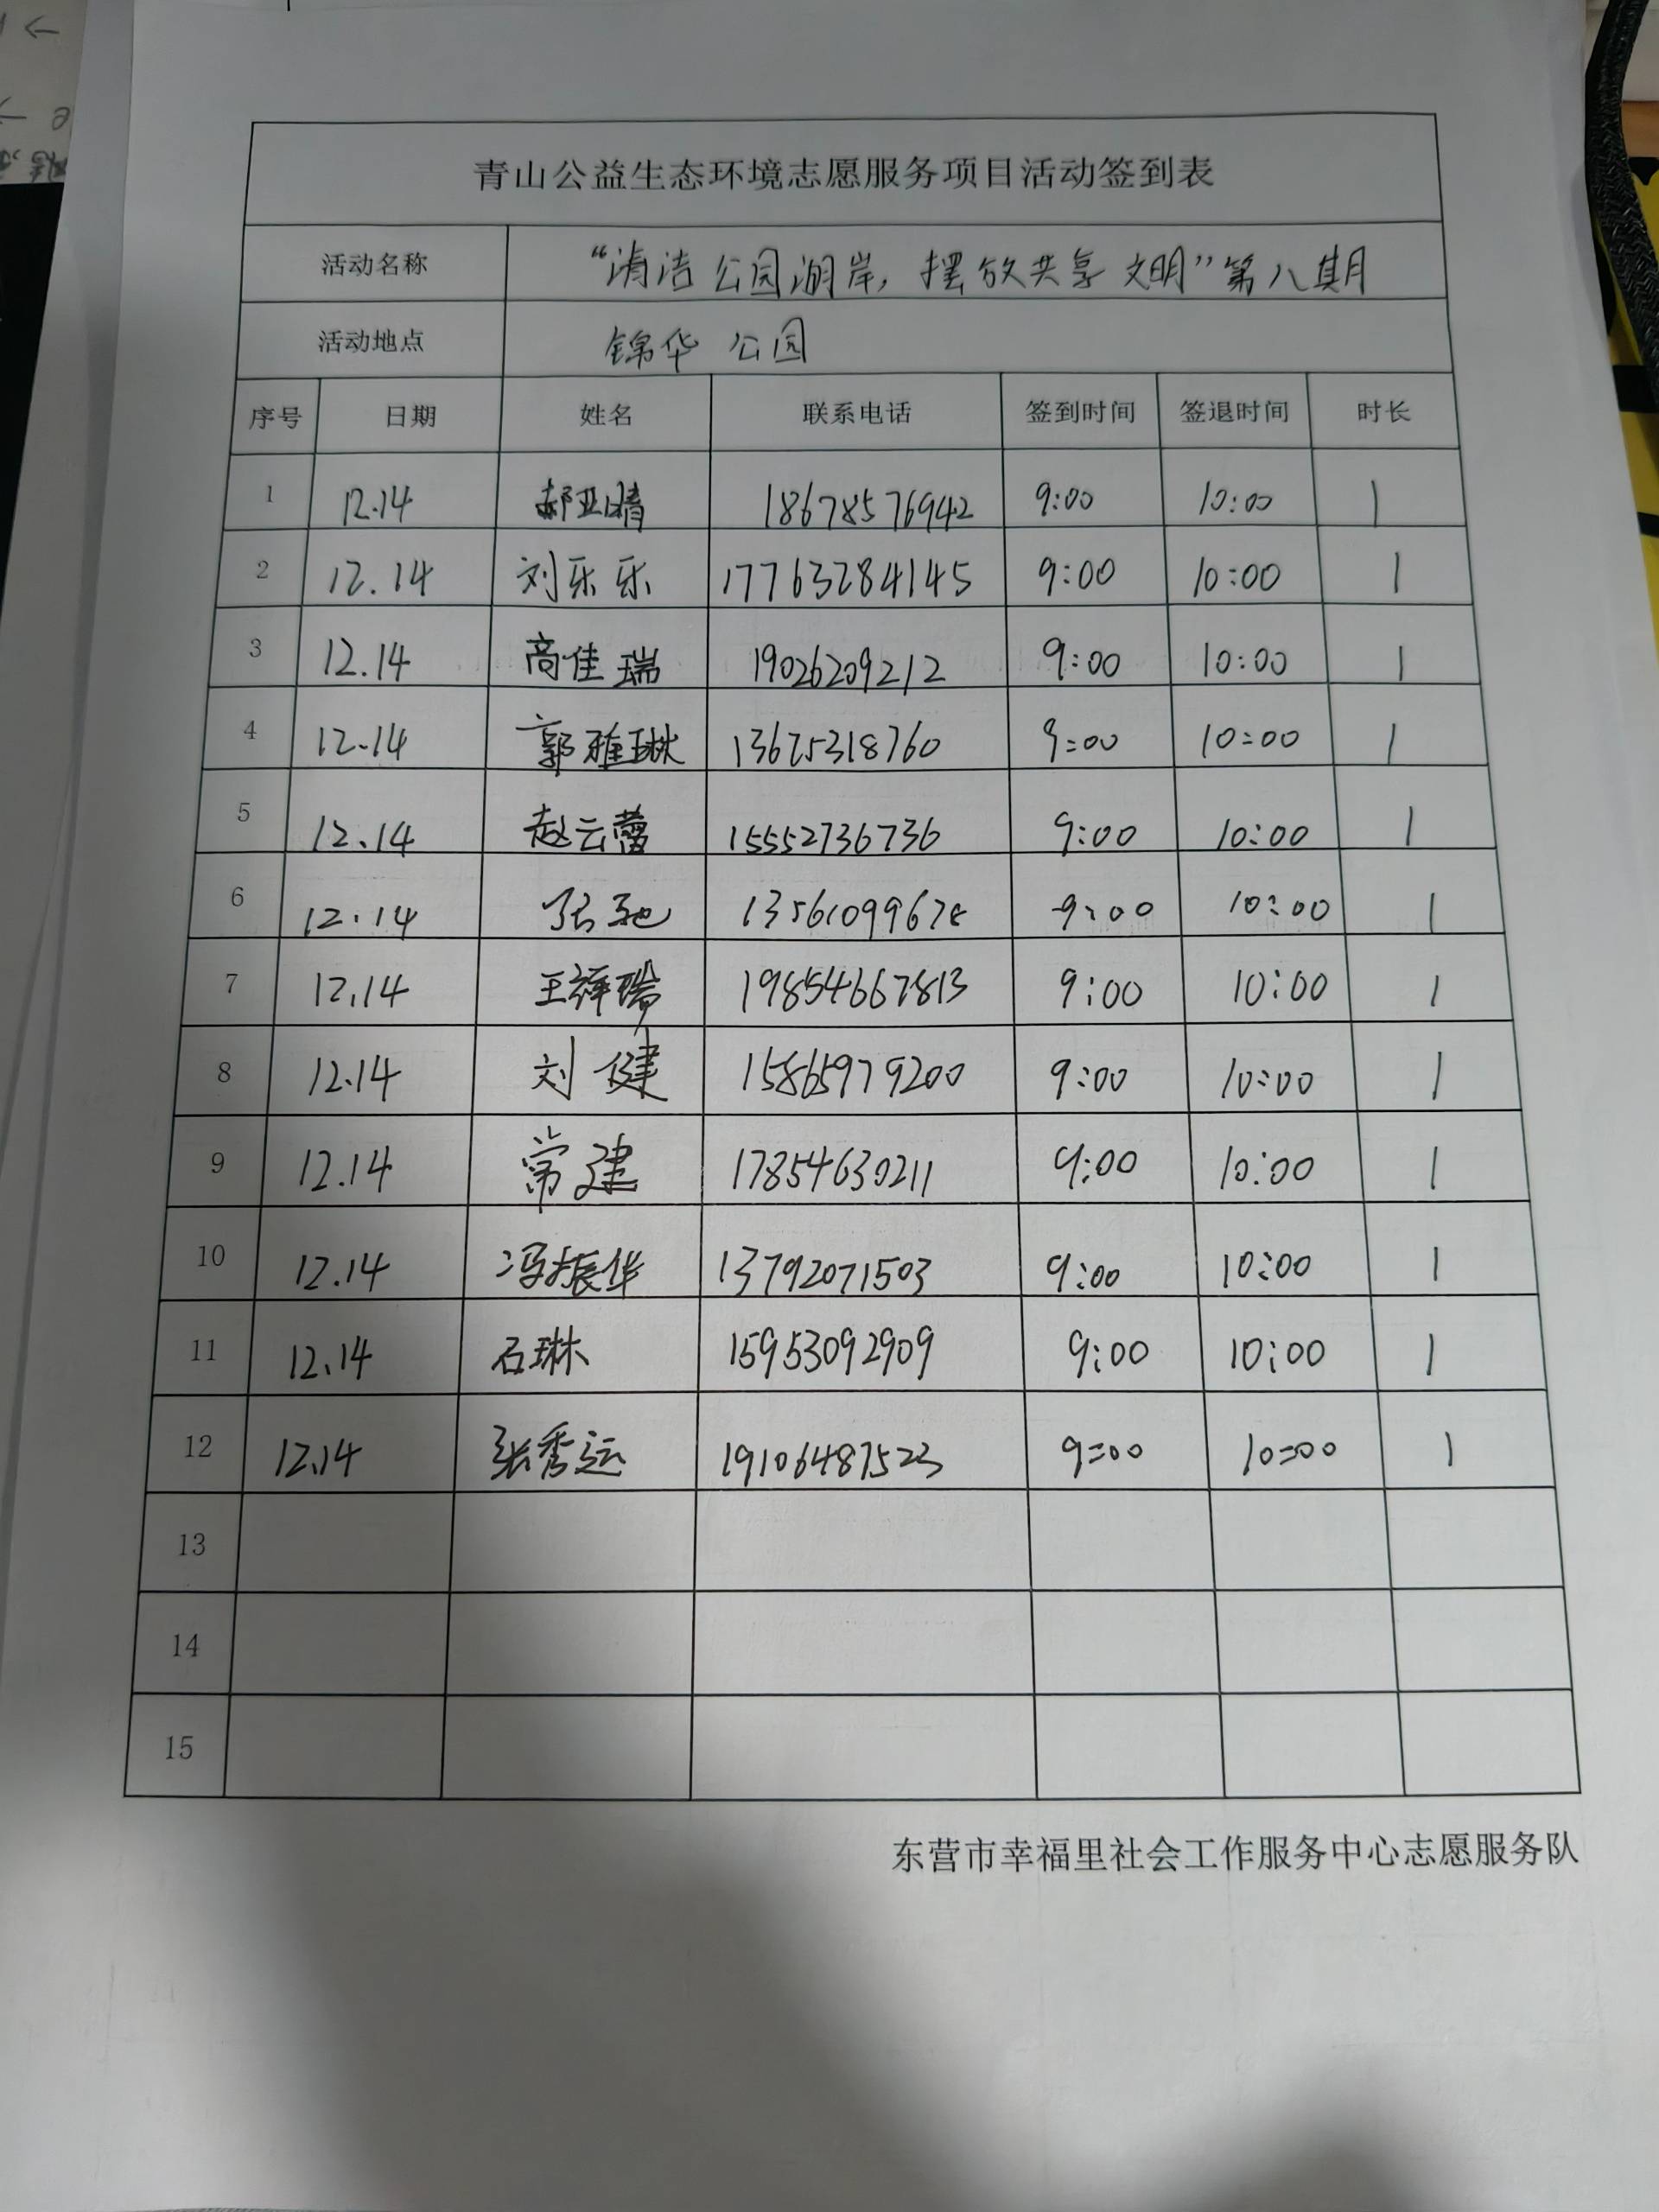 青山公益生态环境志愿服务项目活动签到表
活动名称 “清洁公园湖岸，摆放共享文明”第八期
活动地点 锦华公园
序号 日期 姓名 联系电话 签到时间 签退时间 时长
1 12.14 郝亚晴 18678576942 9:00 10:00 1
2 12.14 刘乐乐 17763284145 9:00 10:00 1
3 12.14 高佳瑞 19026209212 9:00 10:00 1
4 12.14 郭雅琳 13625318760 9:00 10:00 1
5 12.14 赵云蕾 15552736736 9:00 10:00 1
6 12.14 张驰 13561099678 9:00 10:00 1
7 12.14 王祥瑞 19854667813 9:00 10:00 1
8 12.14 刘健 15865979200 9:00 10:00 1
9 12.14 常建 17854630211 9:00 10:00 1
10 12.14 冯振华 13792071503 9:00 10:00 1
11 12.14 石琳 15953092909 9:00 10:00 1
12 12.14 张秀运 19106487523 9:00 10:00 1
13
14
15
东营市幸福里社会工作服务中心志愿服务队